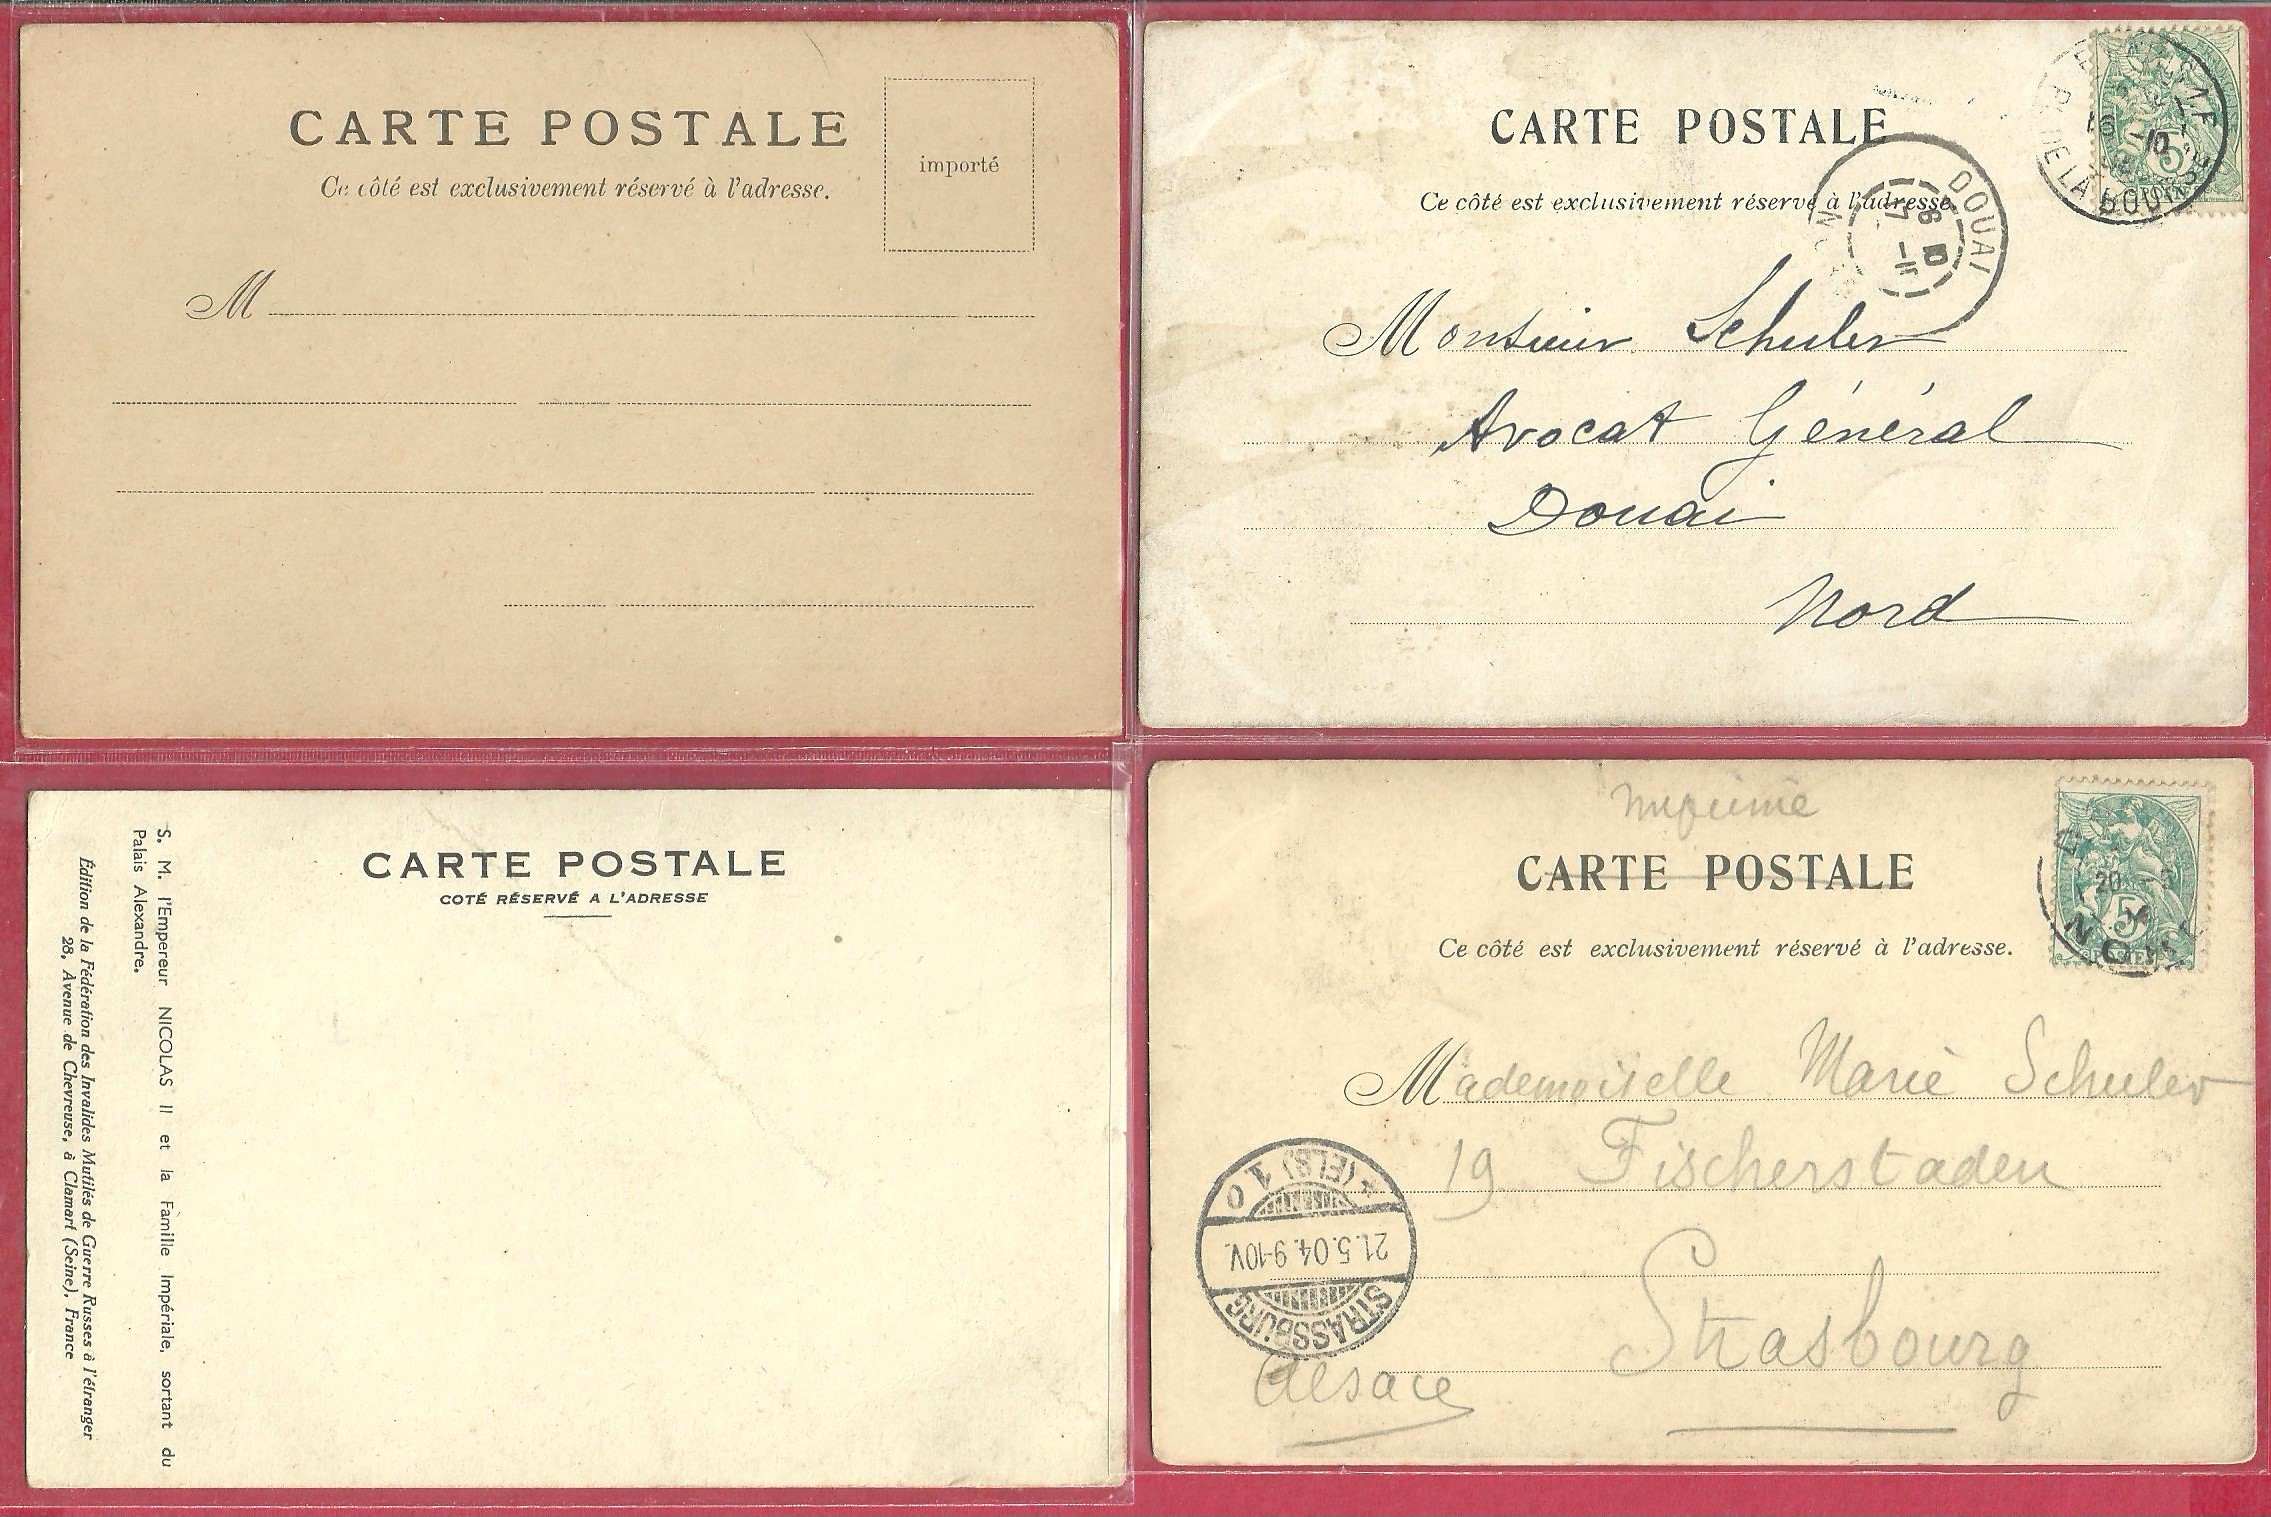 CARTE POSTALE
Ce côté est exclusivement réservé à l'adresse.
importé
M
CARTE POSTALE
Ce côté est exclusivement réservé à l'adresse.
DE LA BOURSE
5
DOUAI
Monsieur Schuler
Avocat Général
Douai
Nord
CARTE POSTALE
COTÉ RÉSERVÉ A L'ADRESSE
S. M. l'Empereur NICOLAS II et la Famille Impériale, sortant du
Palais Alexandre.
Édition de la Fédération des Invalides Mutilés de Guerre Russes à l'étranger
28, Avenue de Chevreuse, à Clamart (Seine), France
Imprimé
CARTE POSTALE
Ce côté est exclusivement réservé à l'adresse.
20
5
POSTES
Mademoiselle Marie Schuler
19 Fischerstaden
Strasbourg
Alsace
STRASSBURG
21.5.04.9-10V.
*(ELS) 10